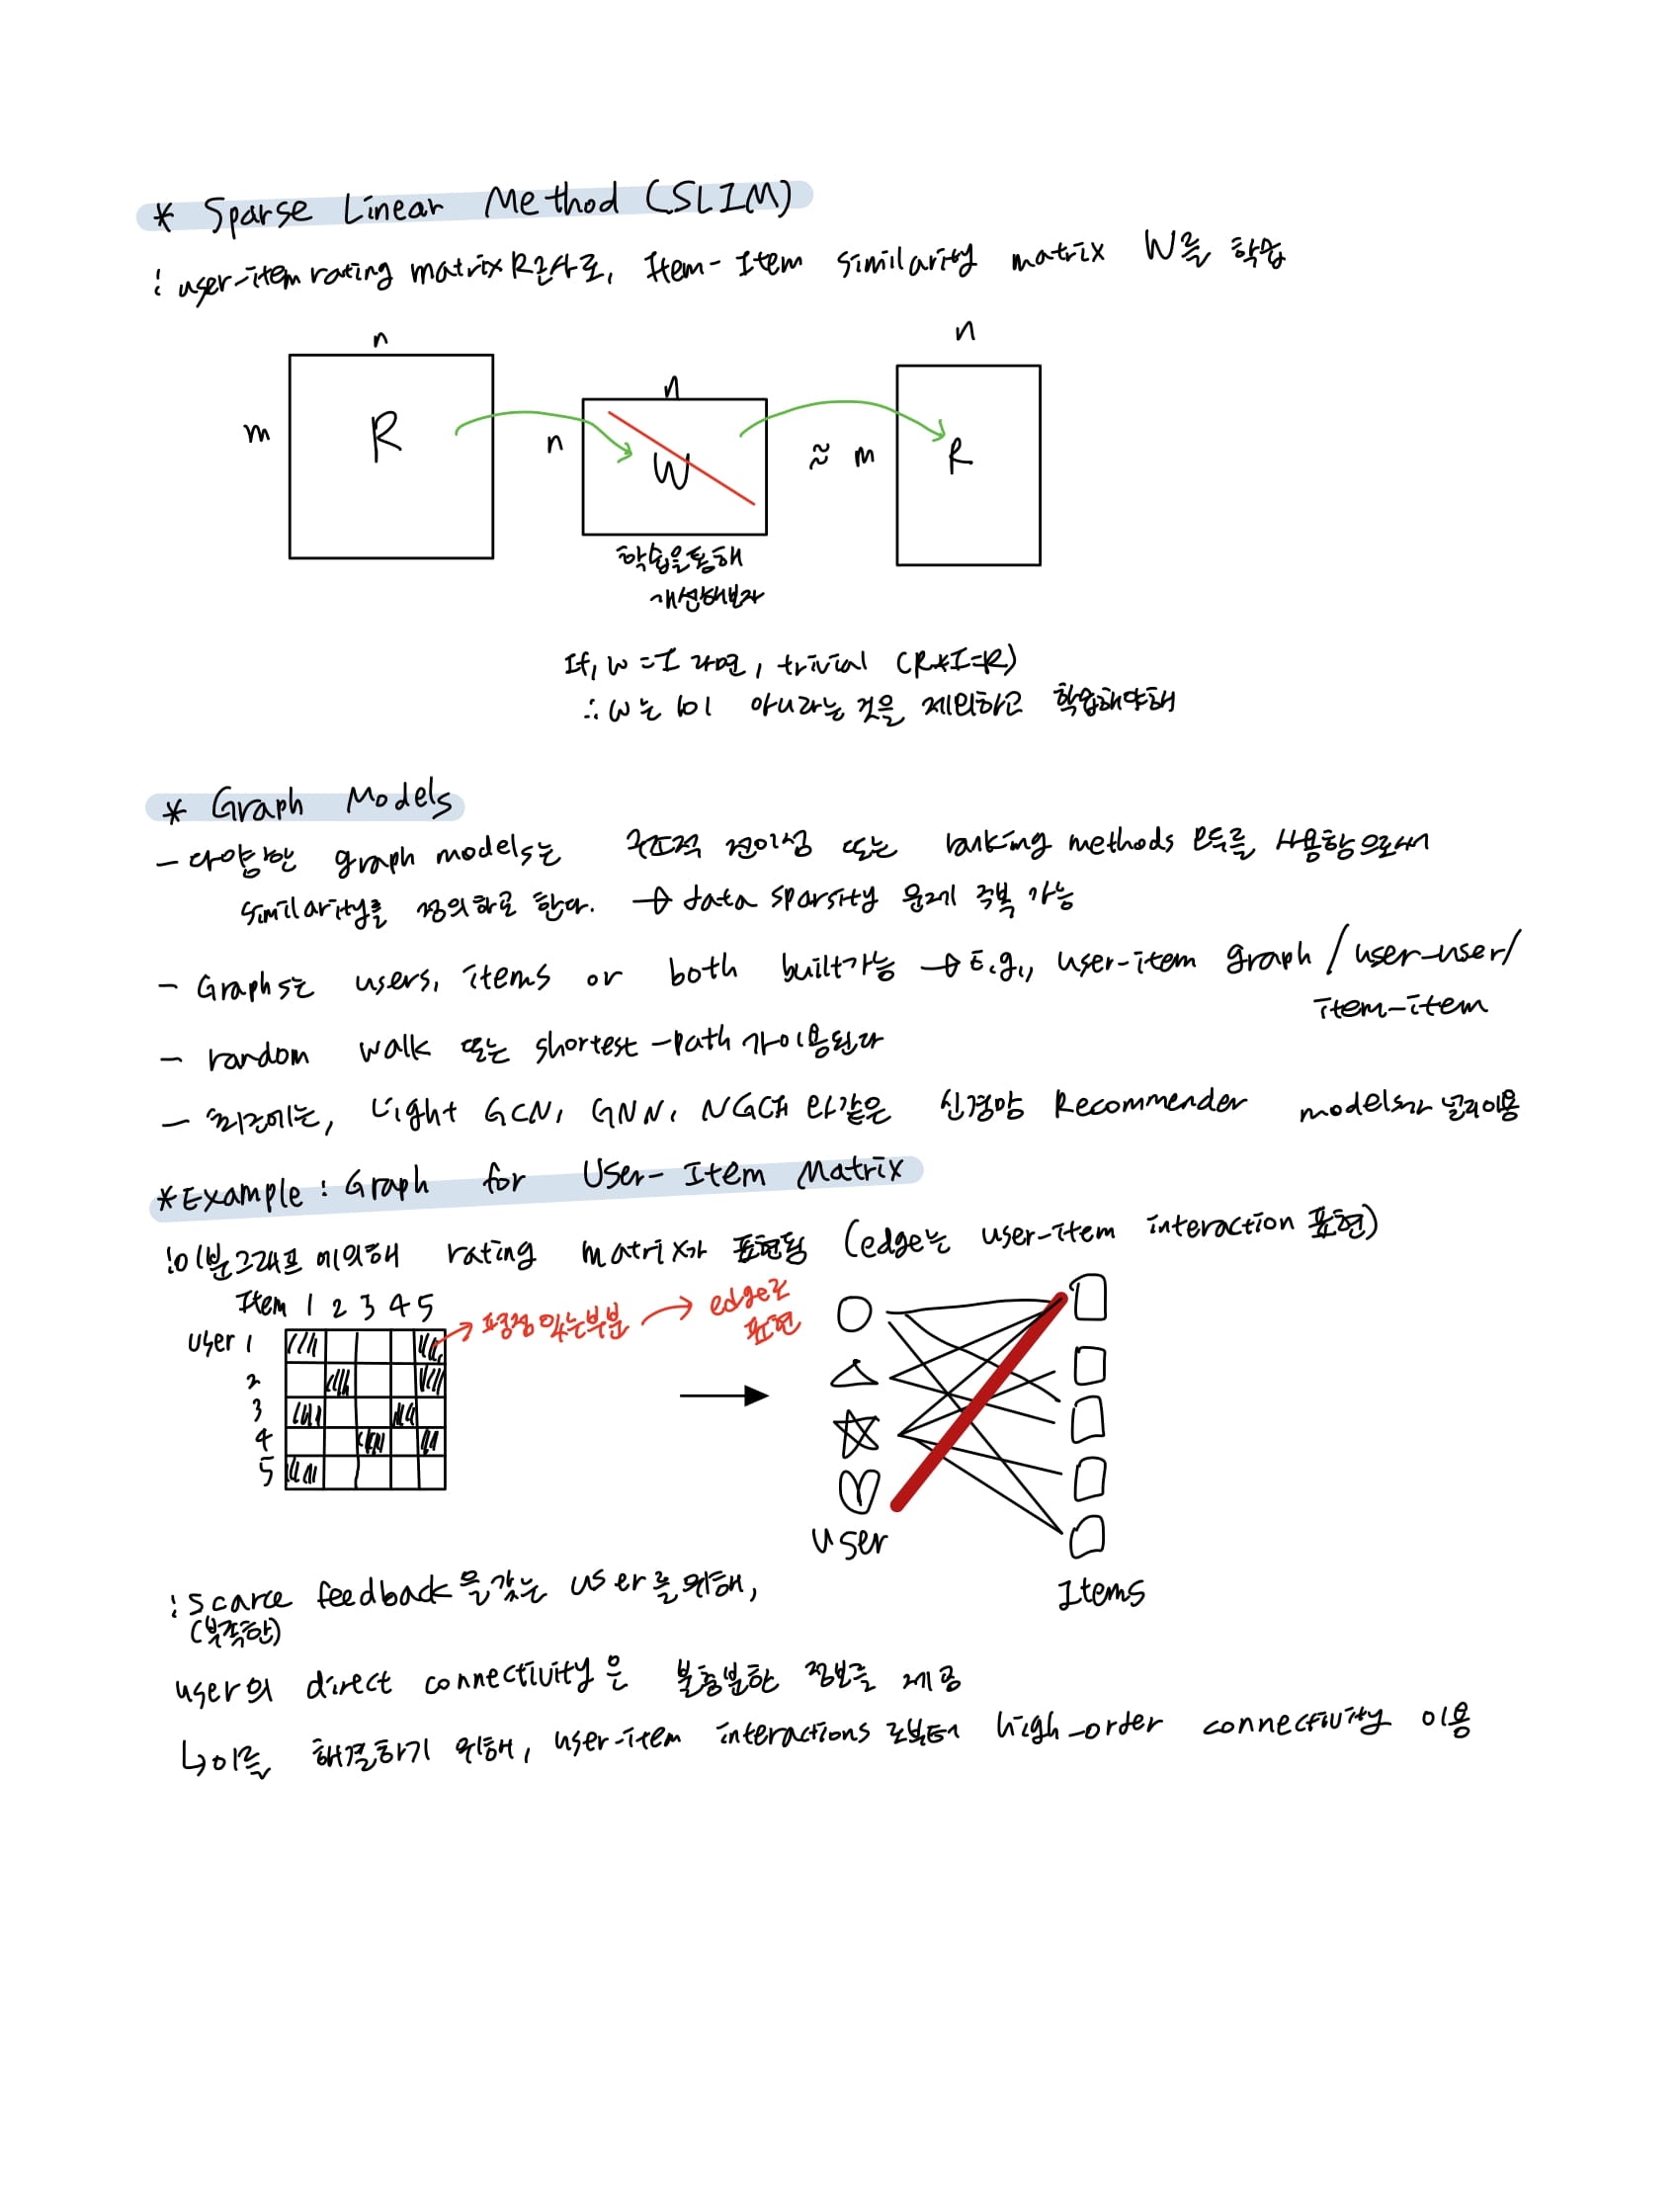 * Sparse Linear Method (SLIM)
: user-item rating matrix R근사로, Item-Item similarity matrix W를 학습
n
n
n
m
R
n
W
≈ m
R
학습을통해
개선해보자
If, W=I 라면, trivial (R*I=R)
∴ W는 I이 아니라는 것을 제외하고 학습해야해
* Graph Models
- 다양한 graph models는 구조적 전이성 또는 ranking methods 모두를 사용함으로써
similarity를 정의하로 한다. → data sparsity 문제 극복 가능
- Graphs는 users, items or both built가능 → E.g., user-item graph / user-user/
item-item
- random walk 또는 shortest-path가이용된다
- 최근에는, Light GCN, GNN, NGCF 와같은 신경망 Recommender models가 널리이용
* Example : Graph for User-Item Matrix
: 이분그래프 에의해 rating matrix가 표현됨 (edge는 user-item interaction 표현)
Item 1 2 3 4 5
user 1
→ 평점 있는부분 → edge로
표현
2
3
4
5
user
Items
: Scarce feedback을갖는 user를위해,
(부족한)
user의 direct connectivity은 불충분한 정보를 제공
↳이를 해결하기 위해, user-item interactions 로부터 high-order connectivity 이용